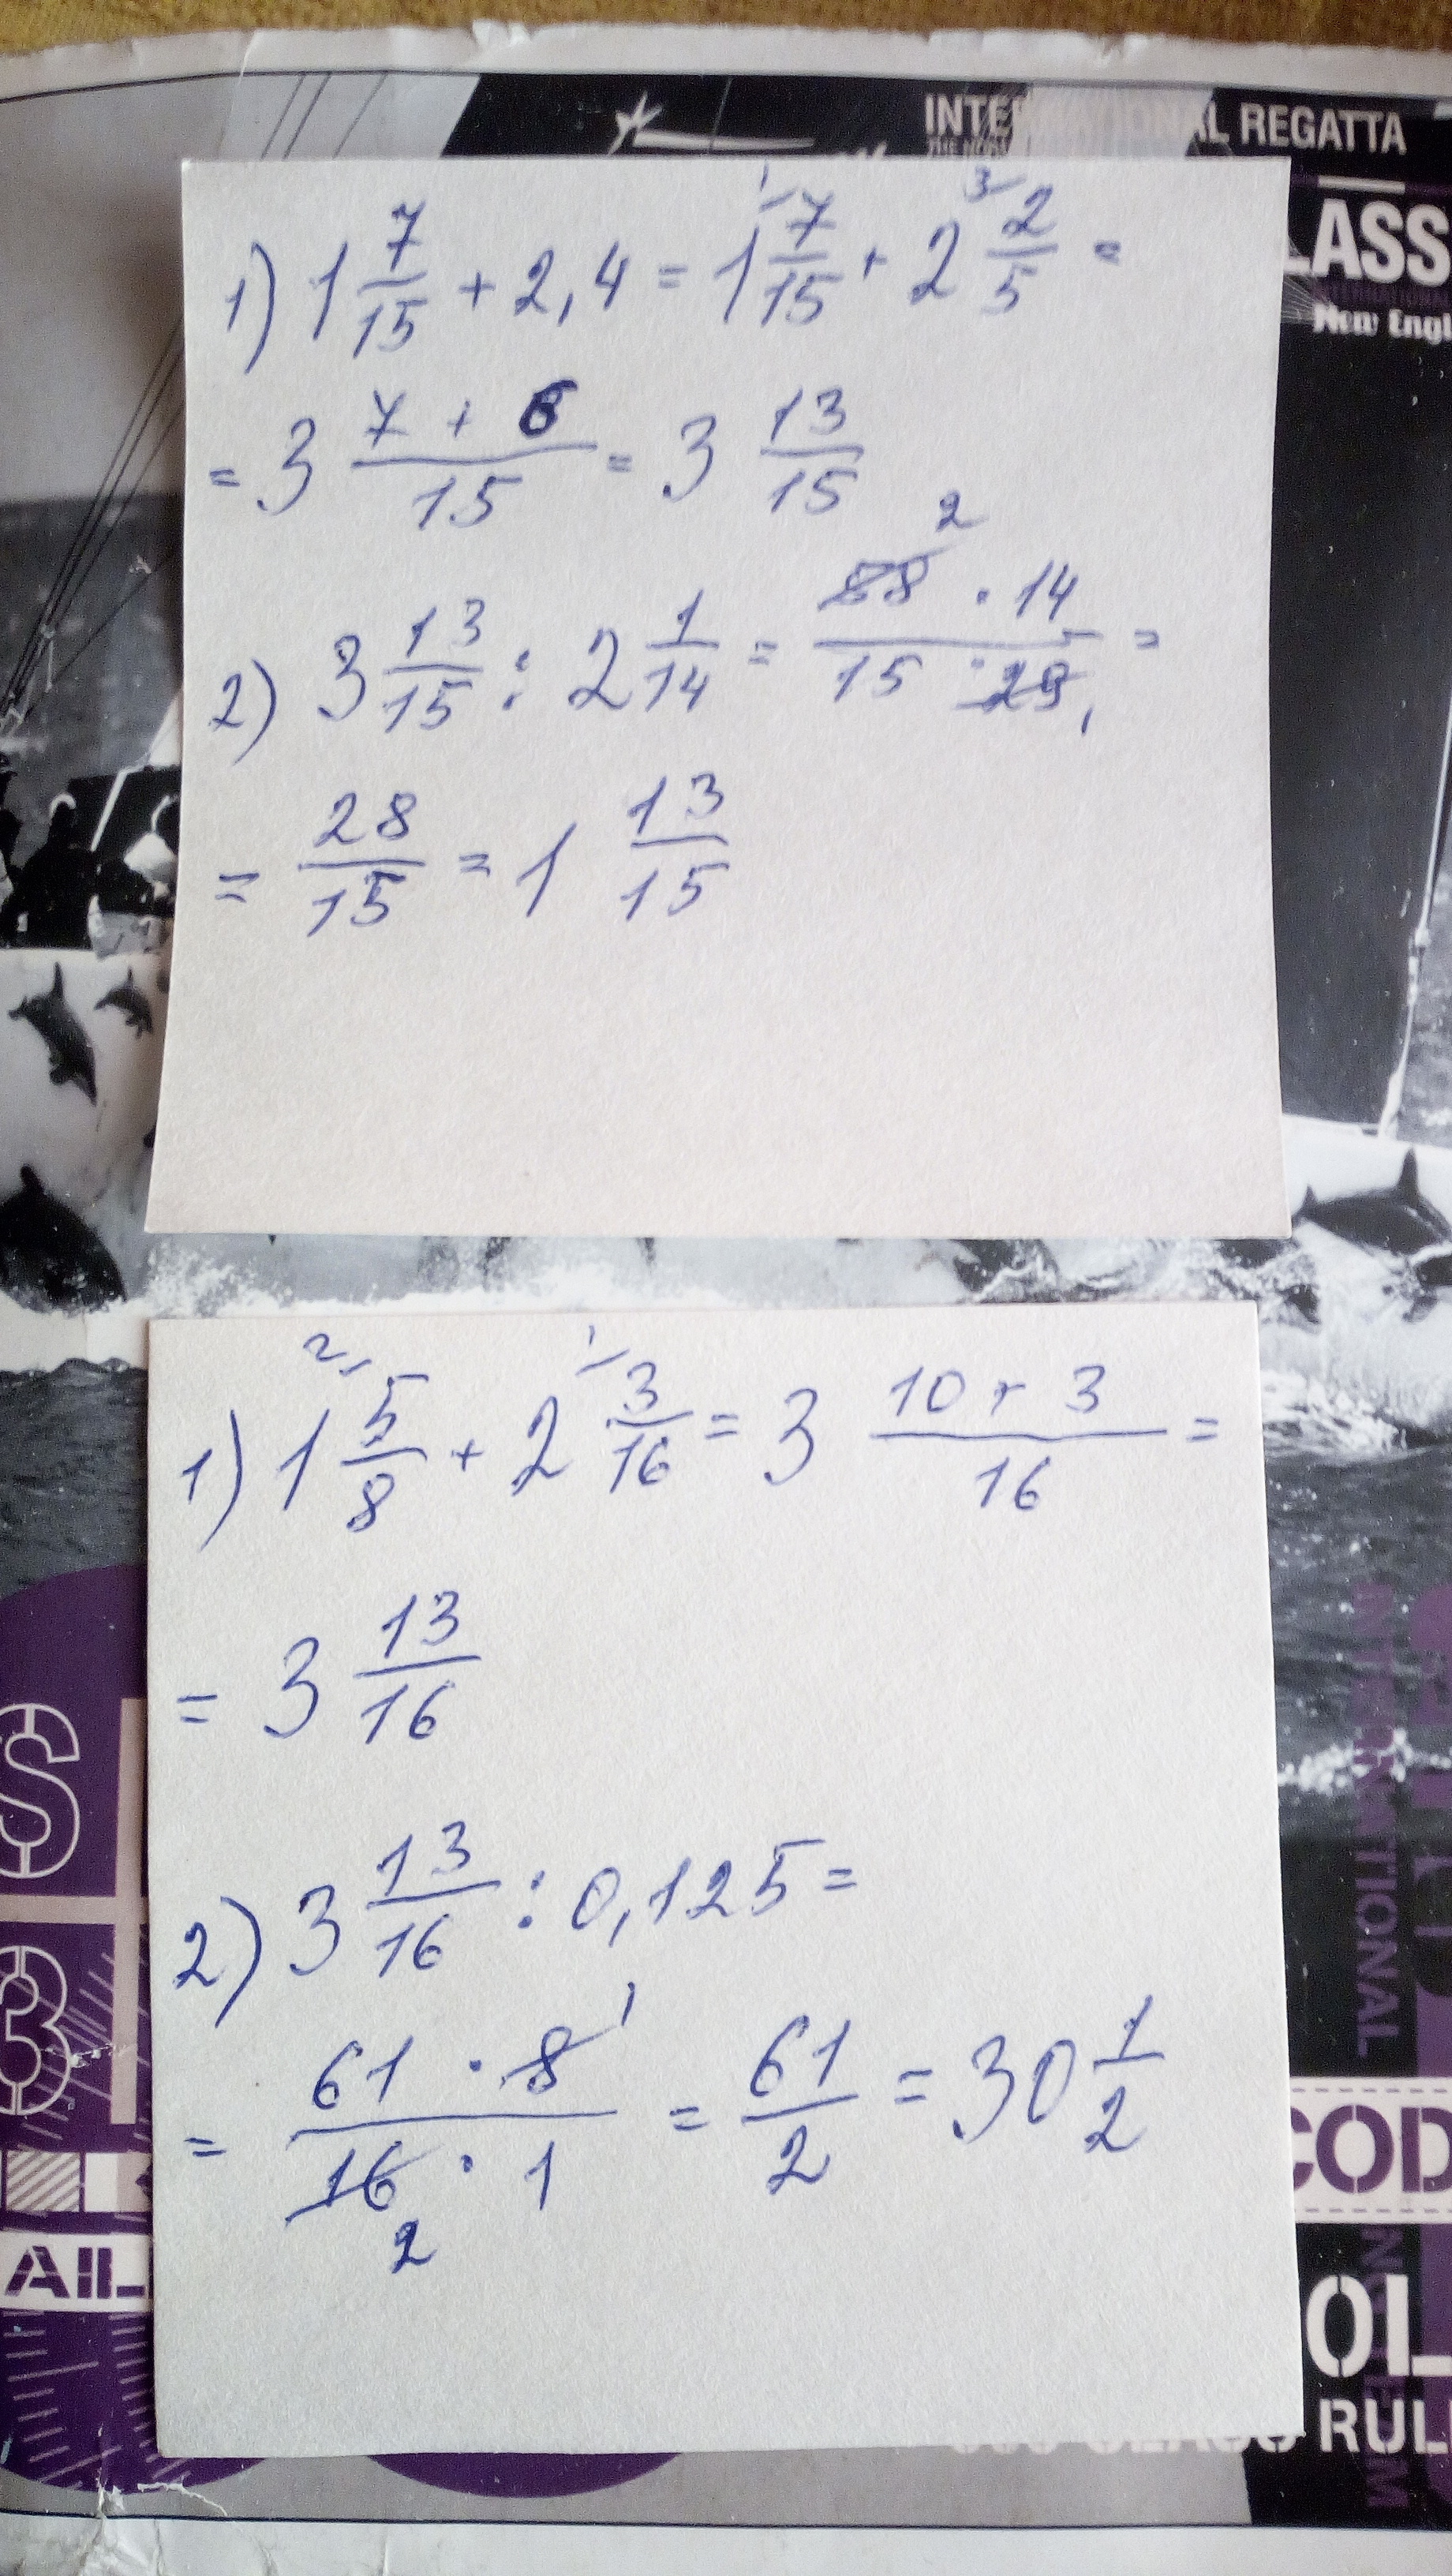 INTERNATIONAL REGATTA
LASS
New Engl
1) 1 7/15 + 2,4 = 1 7/15 + 2 2/5 =
= 3 (7 + 6)/15 = 3 13/15
2) 3 13/15 : 2 1/14 = (58 · 14)/(15 · 29) =
= 28/15 = 1 13/15
1) 1 5/8 + 2 3/16 = 3 (10 + 3)/16 =
= 3 13/16
2) 3 13/16 : 0,125 =
= (61 · 8)/(16 · 1) = 61/2 = 30 1/2
INTERNATIONAL
S
3
COD
AIL
OL
RUL